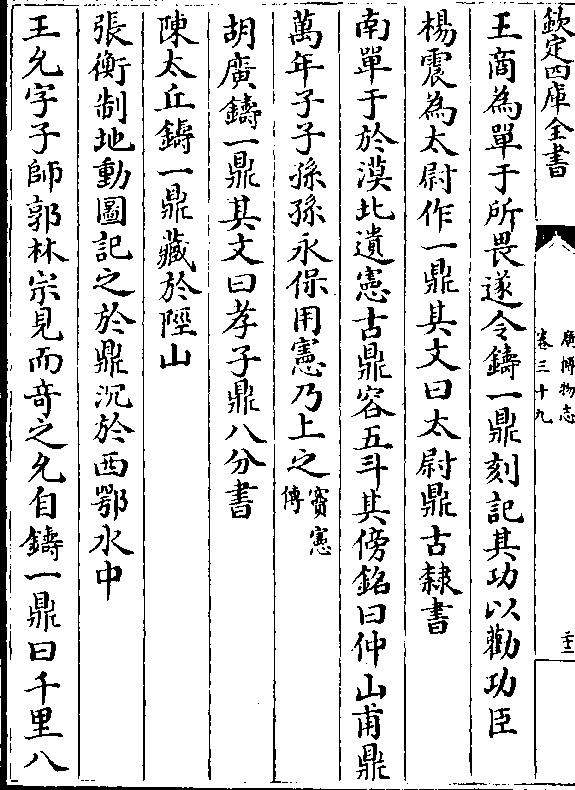 欽定四庫全書
廣博物志
卷三十九
王商為單于所畏遂令鑄一鼎刻記其功以勸功臣
楊震為太尉作一鼎其文曰太尉鼎古隸書
南單于於漠北遺憲古鼎容五斗其傍銘曰仲山甫鼎
萬年子子孫孫永保用憲乃上之竇憲傳
胡廣鑄一鼎其文曰孝子鼎八分書
陳太丘鑄一鼎藏於陘山
張衡制地動圖記之於鼎沉於西鄂水中
王允字子師郭林宗見而奇之允自鑄一鼎曰千里八